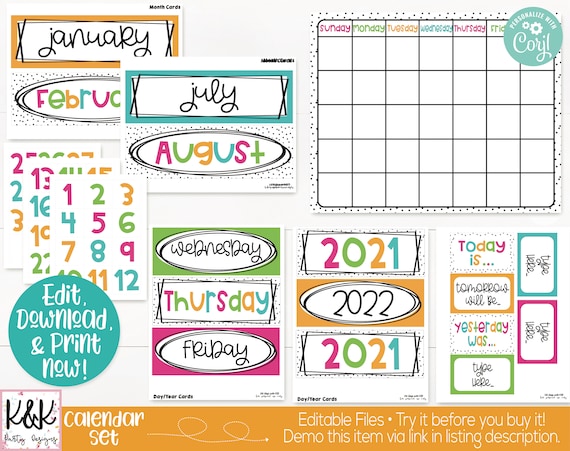 Month Cards
january
February
july
August
Sunday Monday Tuesday Wednesday Thursday
PERSONALIZE WITH
Corjl
1 2 3
4 5 6
7 8 9
12
Wednesday
Thursday
Friday
Day/Year Cards
2021
2022
2021
Day/Year Cards
Today
is...
type
here..
tomorrow
will be..
yesterday
was...
type
here..
Edit,
Download,
& Print
Now!
K&K
Partsy Designs
calendar
set
Editable Files • Try it before you buy it!
Demo this item via link in listing description.